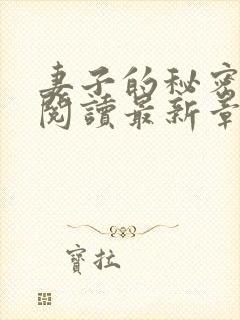 妻子的秘密
閱讀最新章
寶拉